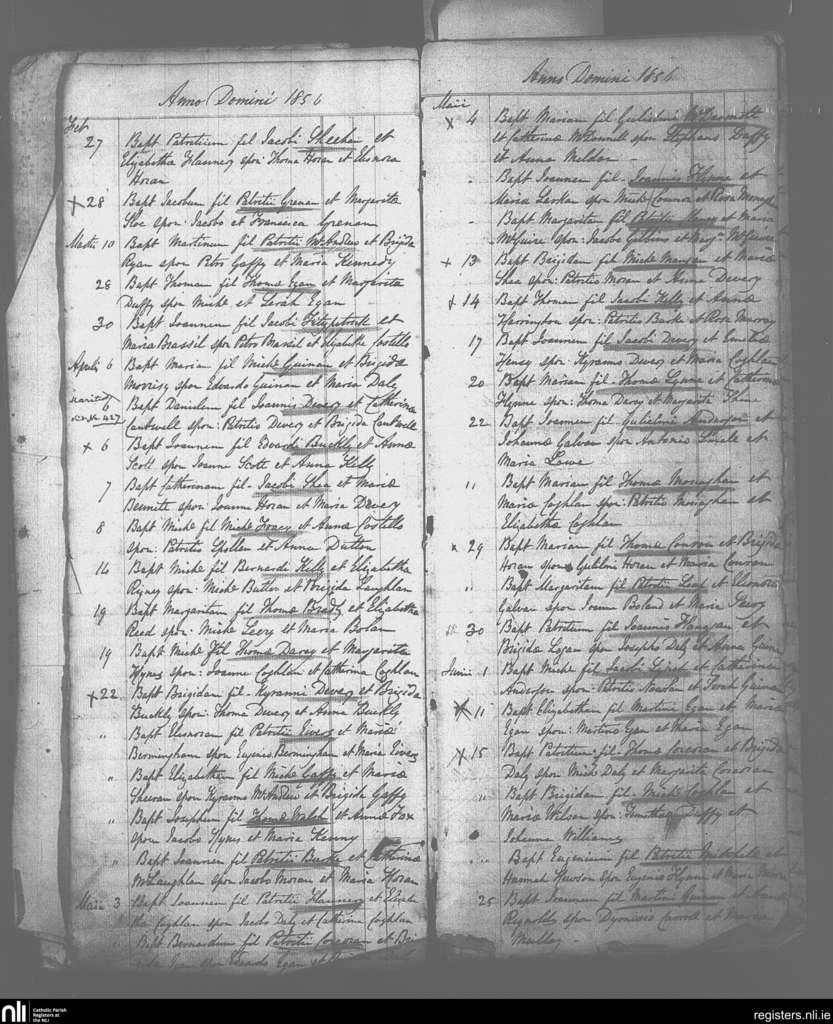 Anno Domini 1856
Feb
27 Bapt Patritium fil Jacobi Sheehan et
Elizabetha Flannery spon: Thoma Horan et Elenora
Horan
x 28 Bapt Jacobum fil Patritii Grenan et Margaritæ
spon: Jacobo et Francisca Grenam
Martii 10 Bapt Martinum fil Patritii McAndrew et Brigida
Ryan spon Petro Gaffy et Maria Kennedy
28 Bapt Thomam fil Thoma Egan et Margarita
Duffy spon Miche et Sarah Egan
30 Bapt Joannem fil Jacobi Fitzpatrick et
Maria Brassil spon Petro Brassil et Elizabetha Costello
Aprili 6 Bapt Mariam fil Miche Guinan et Brigidæ
Morrisy spon Edoardo Guinan et Maria Daly
married
6 Bapt Danielem fil Joannis Devery et Catherina
No 427 Cantwell spon: Patritio Devery et Brigida Cantwell
x 6 Bapt Joannem fil Edoardi Buckly et Annæ
Scott spon Joanne Scott et Anna Kelly
7 Bapt Catherinam fil Jacobi Shea et Mariæ
spon: Joanne Horan et Maria Devery
8 Bapt Miche fil Miche Tracy et Annæ Costello
spon: Patritio Spollen et Anna Dutton
14 Bapt Miche fil Bernardi Kelly et Elizabetha
Rigney spon: Miche Butler et Brigida Laughlan
19 Bapt Margaritam fil Thoma Brady et Elizabetha
Reed spon: Miche Leery et Maria Bolan
19 Bapt Miche fil Thoma Davey et Margarita
Hynes spon: Joanne Coghlan et Catherina Coghlan
x 22 Bapt Brigidam fil Kyranni Devery et Brigida
Buckly spon: Thoma Devery et Anna Buckly
" Bapt Elenoram fil Patritii Eivers et Mariæ
Bermingham spon Eugenio Bermingham et Maria Eivers
" Bapt Elizabetham fil Miche Gaffy et Mariæ
spon Kyranno McAndrew et Brigida Gaffy
" Bapt Josephum fil Thomæ Walsh et Annæ Fox
spon Jacobo Hynes et Maria Kenny
" Bapt Joannem fil Patritii Burke et Catherinæ
McLaughlan spon Jacobo Moran et Maria Horan
Maii 3 Bapt Joannem fil Patritii Flannery et Eliza
tha Coghlan spon Jacobo Daly et Catherina Coghlan
Bapt Bernardum fil Patritii Corcoran et Bri
Egan spon Edoardo Egan et
Anno Domini 1856
Maii
x 4 Bapt Mariam fil Gulielmi McDermott
et Catherinæ spon Stephano Duffy
et Anna Meldon
" Bapt Joannem fil Joannis Flynne et
Maria Larkin spon Miche Connor et Rosa
" Bapt Margaritam fil Patritii et Maria
McGuire spon: Jacobo Gibbins et Margt McGuire
x 13 Bapt Brigidam fil Miche et Mariæ
Shea spon: Patritio Moran et Anna Devery
x 14 Bapt Thomam fil Jacobi Kelly et Annæ
Harrington spon: Patritio Burke et Rosa Murray
17 Bapt Joannem fil Jacobi Devery et
Henry spon: Kyranno Devery et Maria Coghlan
20 Bapt Mariam fil Thoma Lyons et Catherina
Flynne spon: Thoma Davy et Margarita
22 Bapt Joannem fil Gulielmi Anderson et
Johannæ Galvan spon Antonio et
Maria Lowe
" Bapt Mariam fil Thoma Monaghan et
Mariæ Coghlan spon: Patritio Monaghan et
Elizabetha Coghlan
x 29 Bapt Mariam fil Thomæ Conron et Brigida
Horan spon Guliel Horan et Maria Conran
" Bapt Margaritam fil Patritii et Elenora
Galvan spon Joanne Boland et Maria
30 Bapt Patritium fil Joannis Flanagan et
Brigida Logan spon Josepho Daly et Anna
Junii 1 Bapt Miche fil Jacobi et Catherinæ
Anderson spon: Patritio et Sarah Guinan
x 11 Bapt Elizabetham fil Martini Egan et Mariæ
Egan spon: Martino Egan et Maria Egan
x 15 Bapt Patritium fil Thoma Corcoran et Brigida
Daly spon Miche Daly et Margarita Corcoran
" Bapt Brigidam fil Miche Coghlan et
Mariæ Wilson spon Timotheo Duffy et
Johanna Williams
" Bapt Eugenium fil Patritii Mitchell et
Hannah Hewson spon Eugenio Flynn et Maria
25 Bapt Joannem fil Martini Guinan et
Reynolds spon Dyonisio Carroll et Maria
Mullay
nli
Catholic Parish
Registers at
the NLI
registers.nli.ie